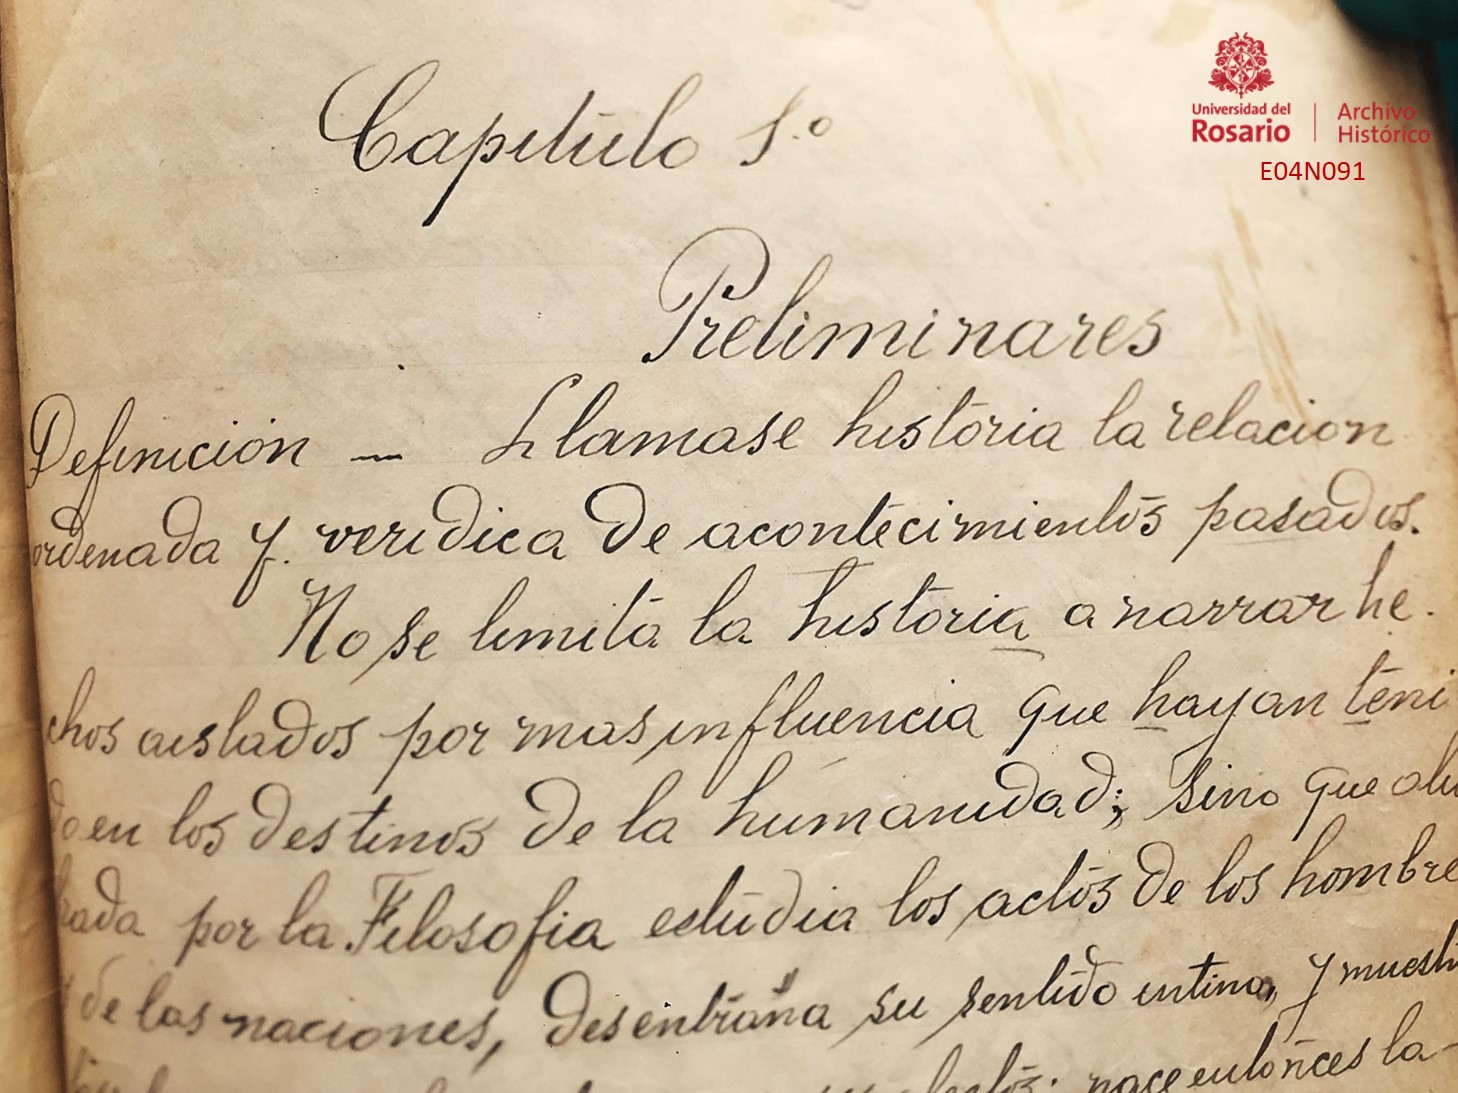 Universidad del
Rosario
Archivo
Histórico
E04N091
Capitulo 1.º
Preliminares
Definición — Llamase história la relacion
ordenada y. veridica de acontecimientos pasados.
No se limita la historia a narrar he-
chos aislados por mas influencia que hayan teni
do en los destinos de la humanidad; sino que alu
brada por la Filosofia estudia los actos de los hombre
y de las naciones, desentraña su sentido intimo, y muest
nace entonces la-